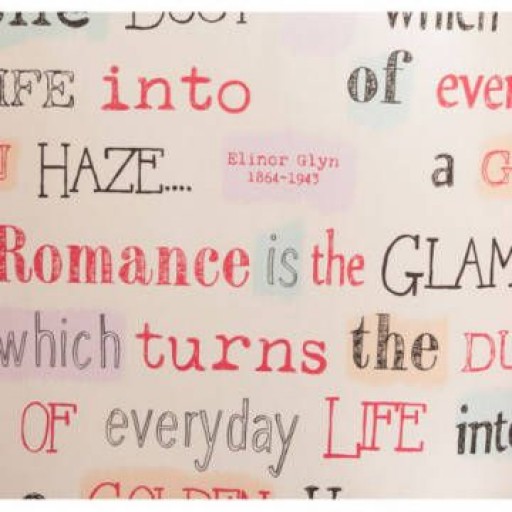 which
IFE into of ever
HAZE.... Elinor Glyn a G
1864-1943
Romance is the GLAM
which turns the DU
OF everyday LIFE into
GOLDEN H